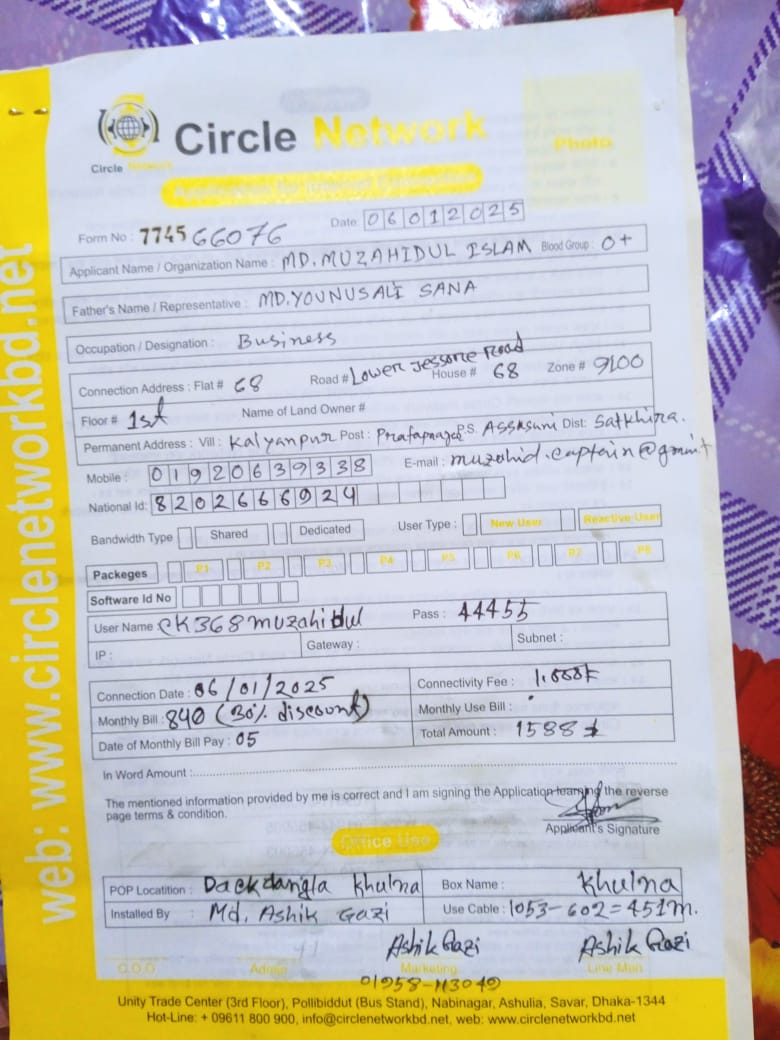 Circle Network
Circle Network
Photo
Application for Internet Connection
Date 06012025
Form No : 774566076
Applicant Name / Organization Name : MD. MUZAHIDUL ISLAM Blood Group : O+
Father's Name / Representative : MD. YOUNUS ALI SANA
Occupation / Designation : Business
Connection Address : Flat # 68 Road # Lower Jessore Road House # 68 Zone # 9100
Floor # 1st Name of Land Owner #
Permanent Address : Vill : Kalyanpur Post : Pratapnagar P.S. Assasuni Dist: Satkhira.
Mobile : 01920639338 E-mail : muzahid.captain@
National Id: 8202666924
Bandwidth Type Shared Dedicated User Type : New User Reactive User
Packeges P1 P2 P3 P4 P5 P6 P7 P8
Software Id No
User Name CK368muzahidul Pass : 44455
IP : Gateway : Subnet :
Connection Date : 06/01/2025 Connectivity Fee :
Monthly Bill : 840 (30% discount) Monthly Use Bill :
Date of Monthly Bill Pay : 05 Total Amount : 1588
In Word Amount :
The mentioned information provided by me is correct and I am signing the Application learning the reverse
page terms & condition.
Applicant's Signature
Office Use
POP Locatition : Dackdangla Khulna Box Name : Khulna
Installed By : Md. Ashik Gazi Use Cable : 1053-602=451m.
Ashik Gazi Ashik Gazi
C.O.O Admin Marketing Line Man
Unity Trade Center (3rd Floor), Pollibiddut (Bus Stand), Nabinagar, Ashulia, Savar, Dhaka-1344
Hot-Line: + 09611 800 900, info@circlenetworkbd.net, web: www.circlenetworkbd.net
web: www.circlenetworkbd.net